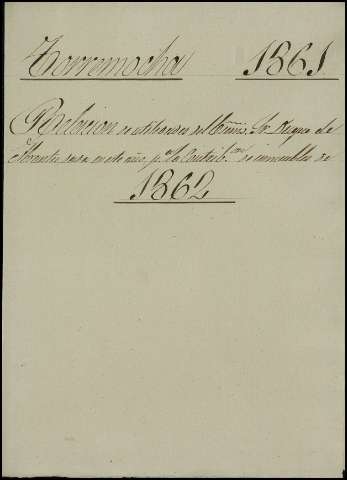 Torremocha 1861
Relacion de utilidades del Excmo. Sr. Duque de
en este año, pª la Contribon de inmuebles de
1862